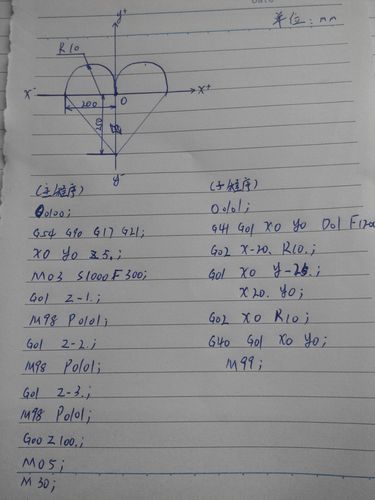 单位: mm
y+
R10
X-
X+
O
200
250
y-
(主程序)
O0100;
G54 G90 G17 G21;
X0 Y0 Z5.;
M03 S1000 F300;
G01 Z-1.;
M98 P0101;
G01 Z-2.;
M98 P0101;
G01 Z-3.;
M98 P0101;
G00 Z100.;
M05;
M30;
(子程序)
O0101;
G41 G01 X0 Y0 D01 F1200
G02 X-20. R10.;
G01 X0 Y-25.;
X20. Y0;
G02 X0 R10;
G40 G01 X0 Y0;
M99;